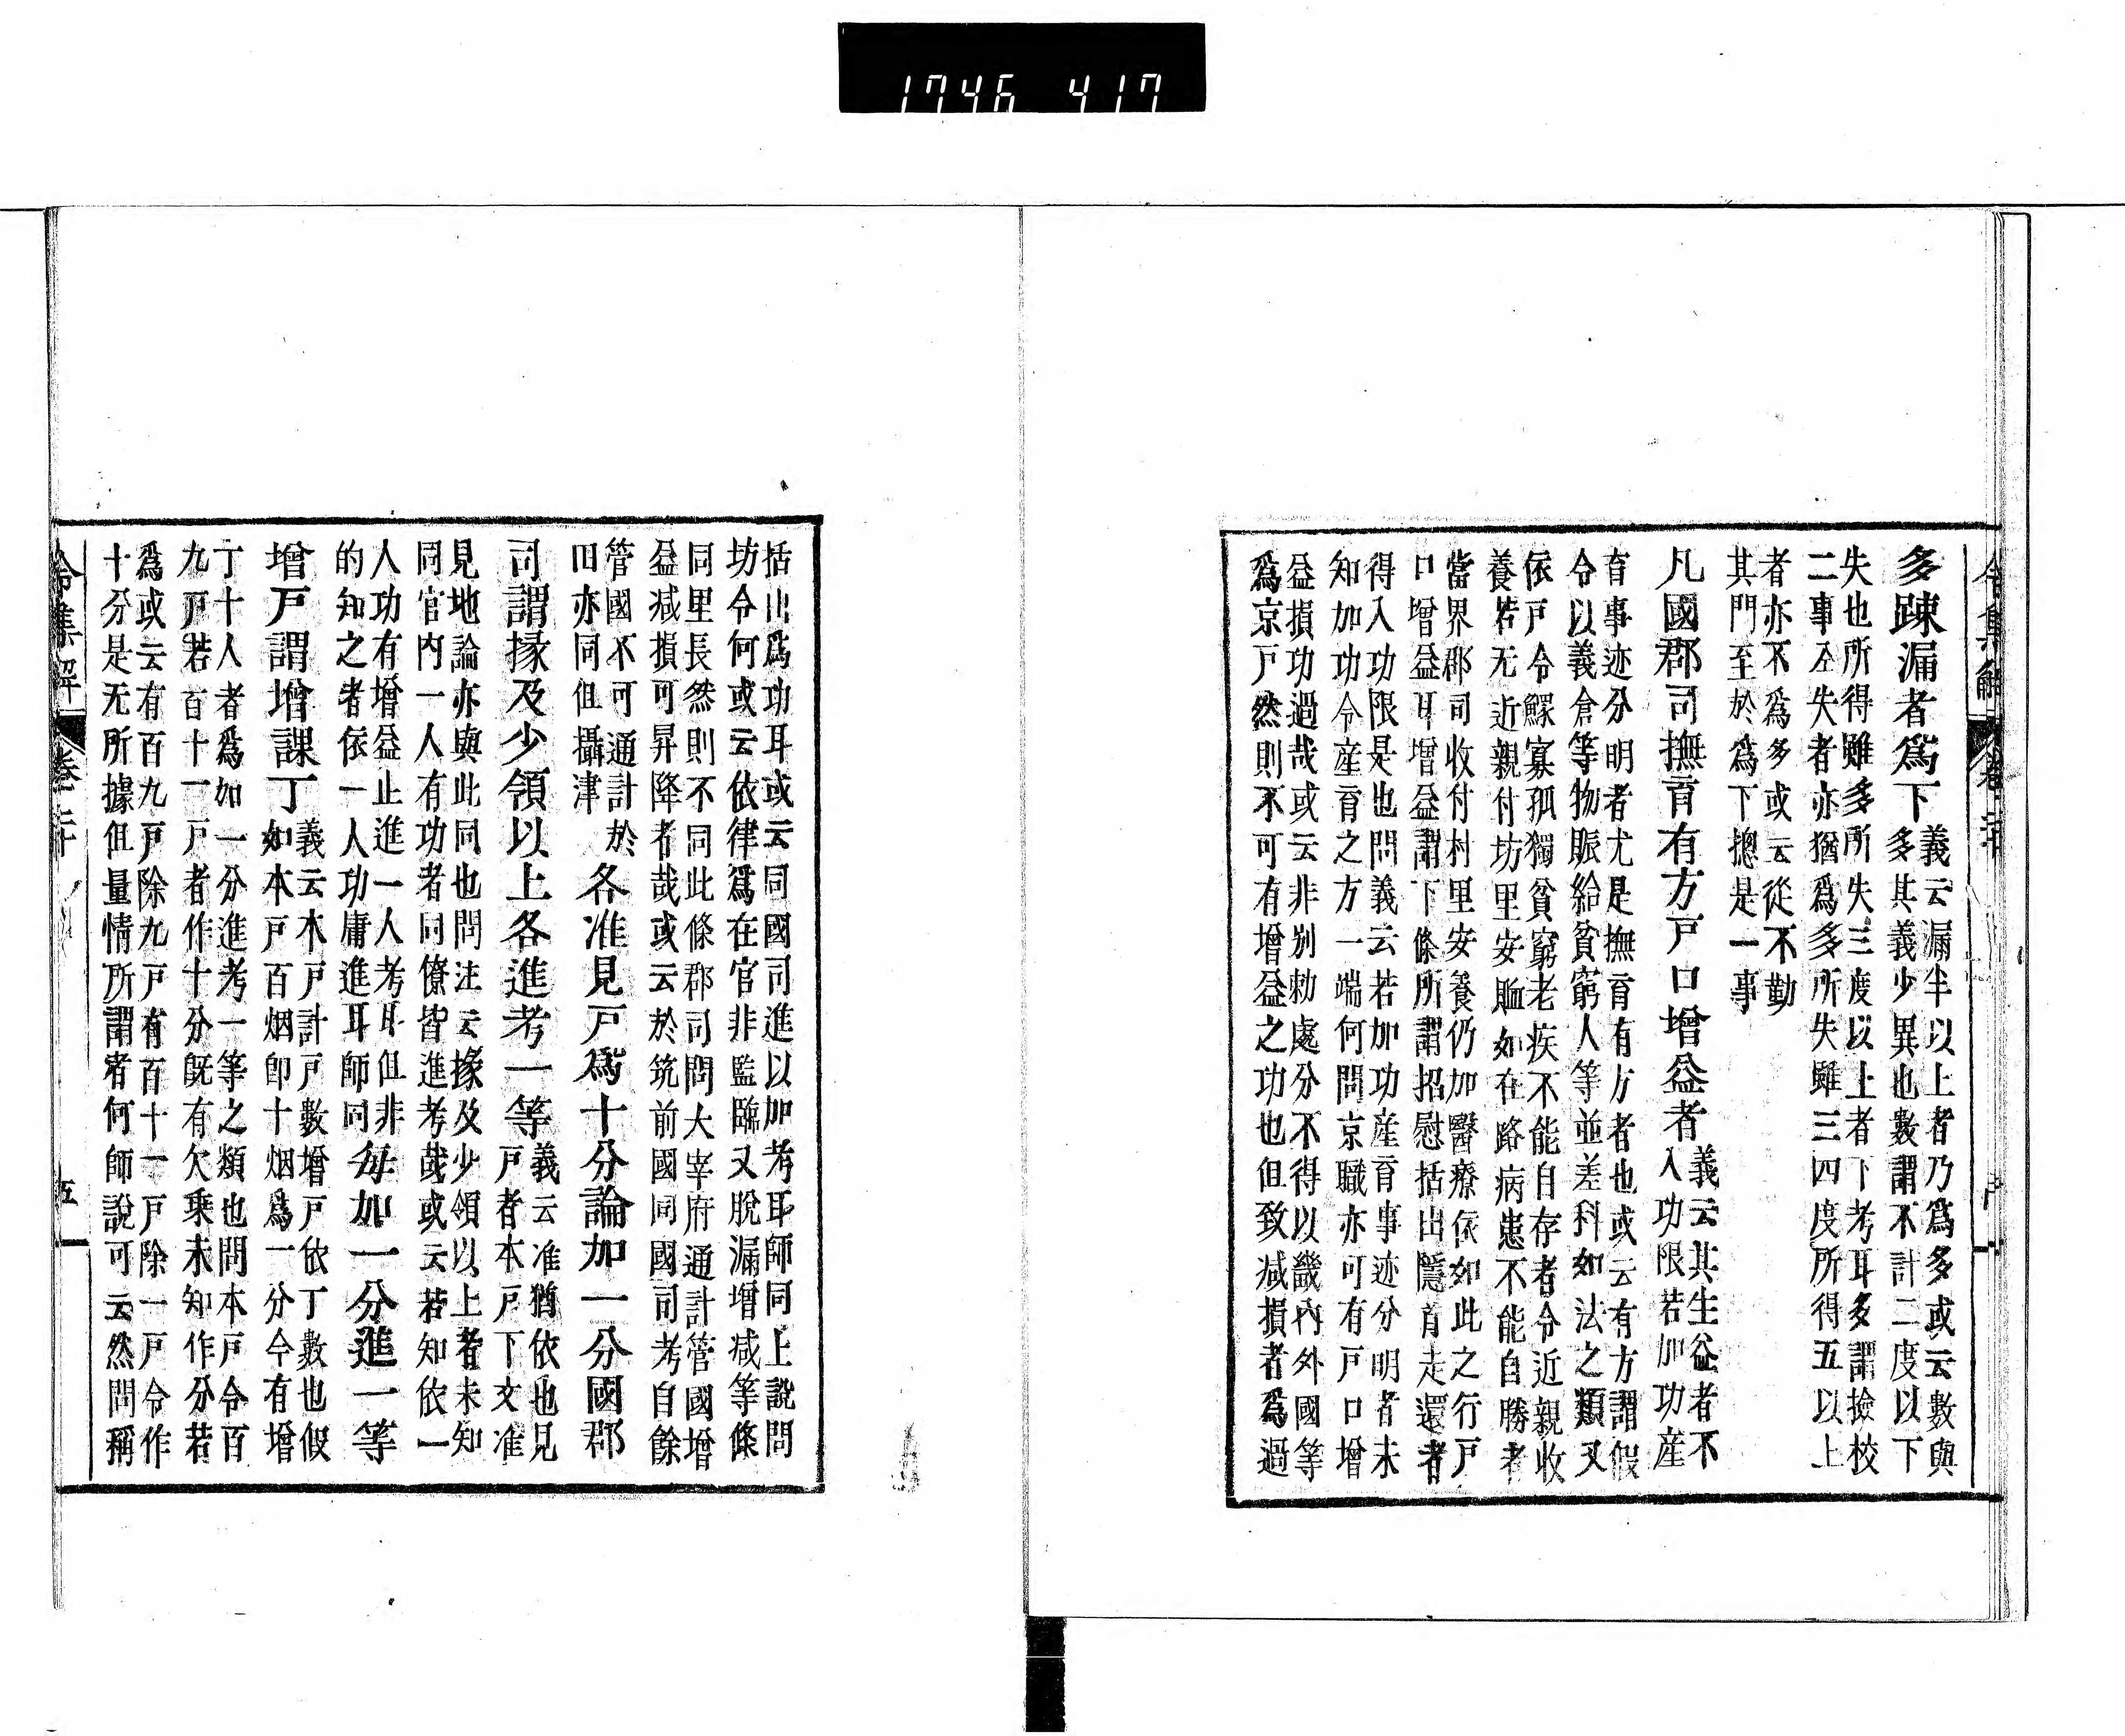 1746 417
多踈漏者爲下
義云漏半以上者乃爲多或云數與
多其義少異也數謂不計二度以下
失也所得雖多所失三度以上者下考耳多謂撿校
二事全失者亦猶爲多所失雖三四度所得五以上
者亦不爲多或云從不勤
其門至於爲下摠是一事
凡國郡司撫育有方戸口增益者
義云其生益者不
入功限若加功産
育事迹分明者尤是撫育有方者也或云有方謂假
令以義倉等物賑給貧窮人等並差科如法之類又
依戸令鰥寡孤獨貧窮老疾不能自存者令近親收
養若无近親付坊里安賑如在路病患不能自勝者
當界郡司收付村里安養仍加醫療依如此之行戸
口增益耳增益謂下條所謂招慰括出隱首走還者
得入功限是也問義云若加功産育事迹分明者未
知加功令産育之方一端何問京職亦可有戸口增
益損功過哉或云非别勅處分不得以畿內外國等
爲京戸然則不可有增益之功也但致減損者爲過
括出爲功耳或云同國司進以加考耳師同上説問
坊令何或云依律爲在官非監臨又脫漏增減等條
同里長然則不同此條郡司問大宰府通計管國增
益減損可昇降者哉或云於筑前國同國司考自餘
管國不可通計於
田亦同但攝津
各准見戸爲十分論加一分國郡
司謂掾及少領以上各進考一等
義云准猶依也見
戸者本戸下文准
見地論亦與此同也問注云掾及少領以上者未知
同官內一人有功者同僚皆進考哉或云若知依一
人功有增益止進一人考耳但非
的知之者依一人功庸進耳師同
每加一分進一等
增戸謂增課丁
義云本戸計戸數增戸依丁數也假
如本戸百烟即十烟爲一分今有增
丁十人者爲加一分進考一等之類也問本戸令百
九戸若百十一戸者作十分既有欠乗未知作分若
爲或云有百九戸除九戸有百十一戸除一戸令作
十分是无所據但量情所謂者何師説可云然問稱
令集解 卷二十 五